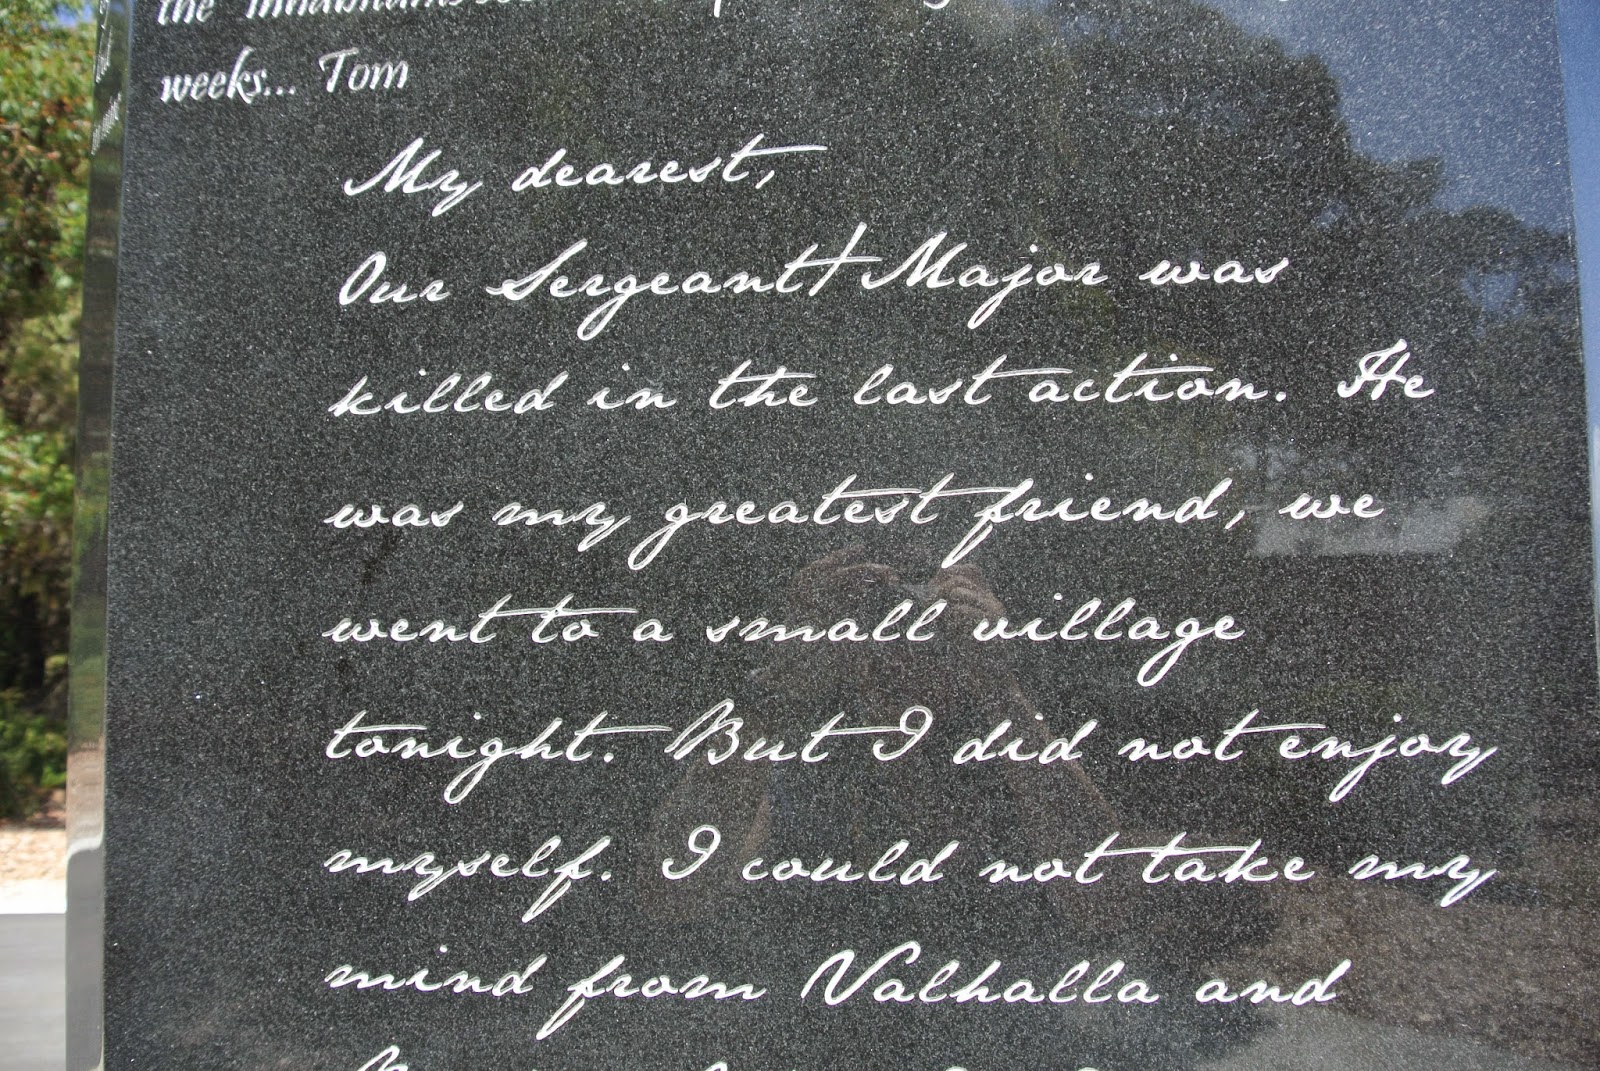 the
weeks... Tom
My dearest,
Our Sergeant Major was
killed in the last action. He
was my greatest friend, we
went to a small village
tonight. But I did not enjoy
myself. I could not take my
mind from Valhalla and